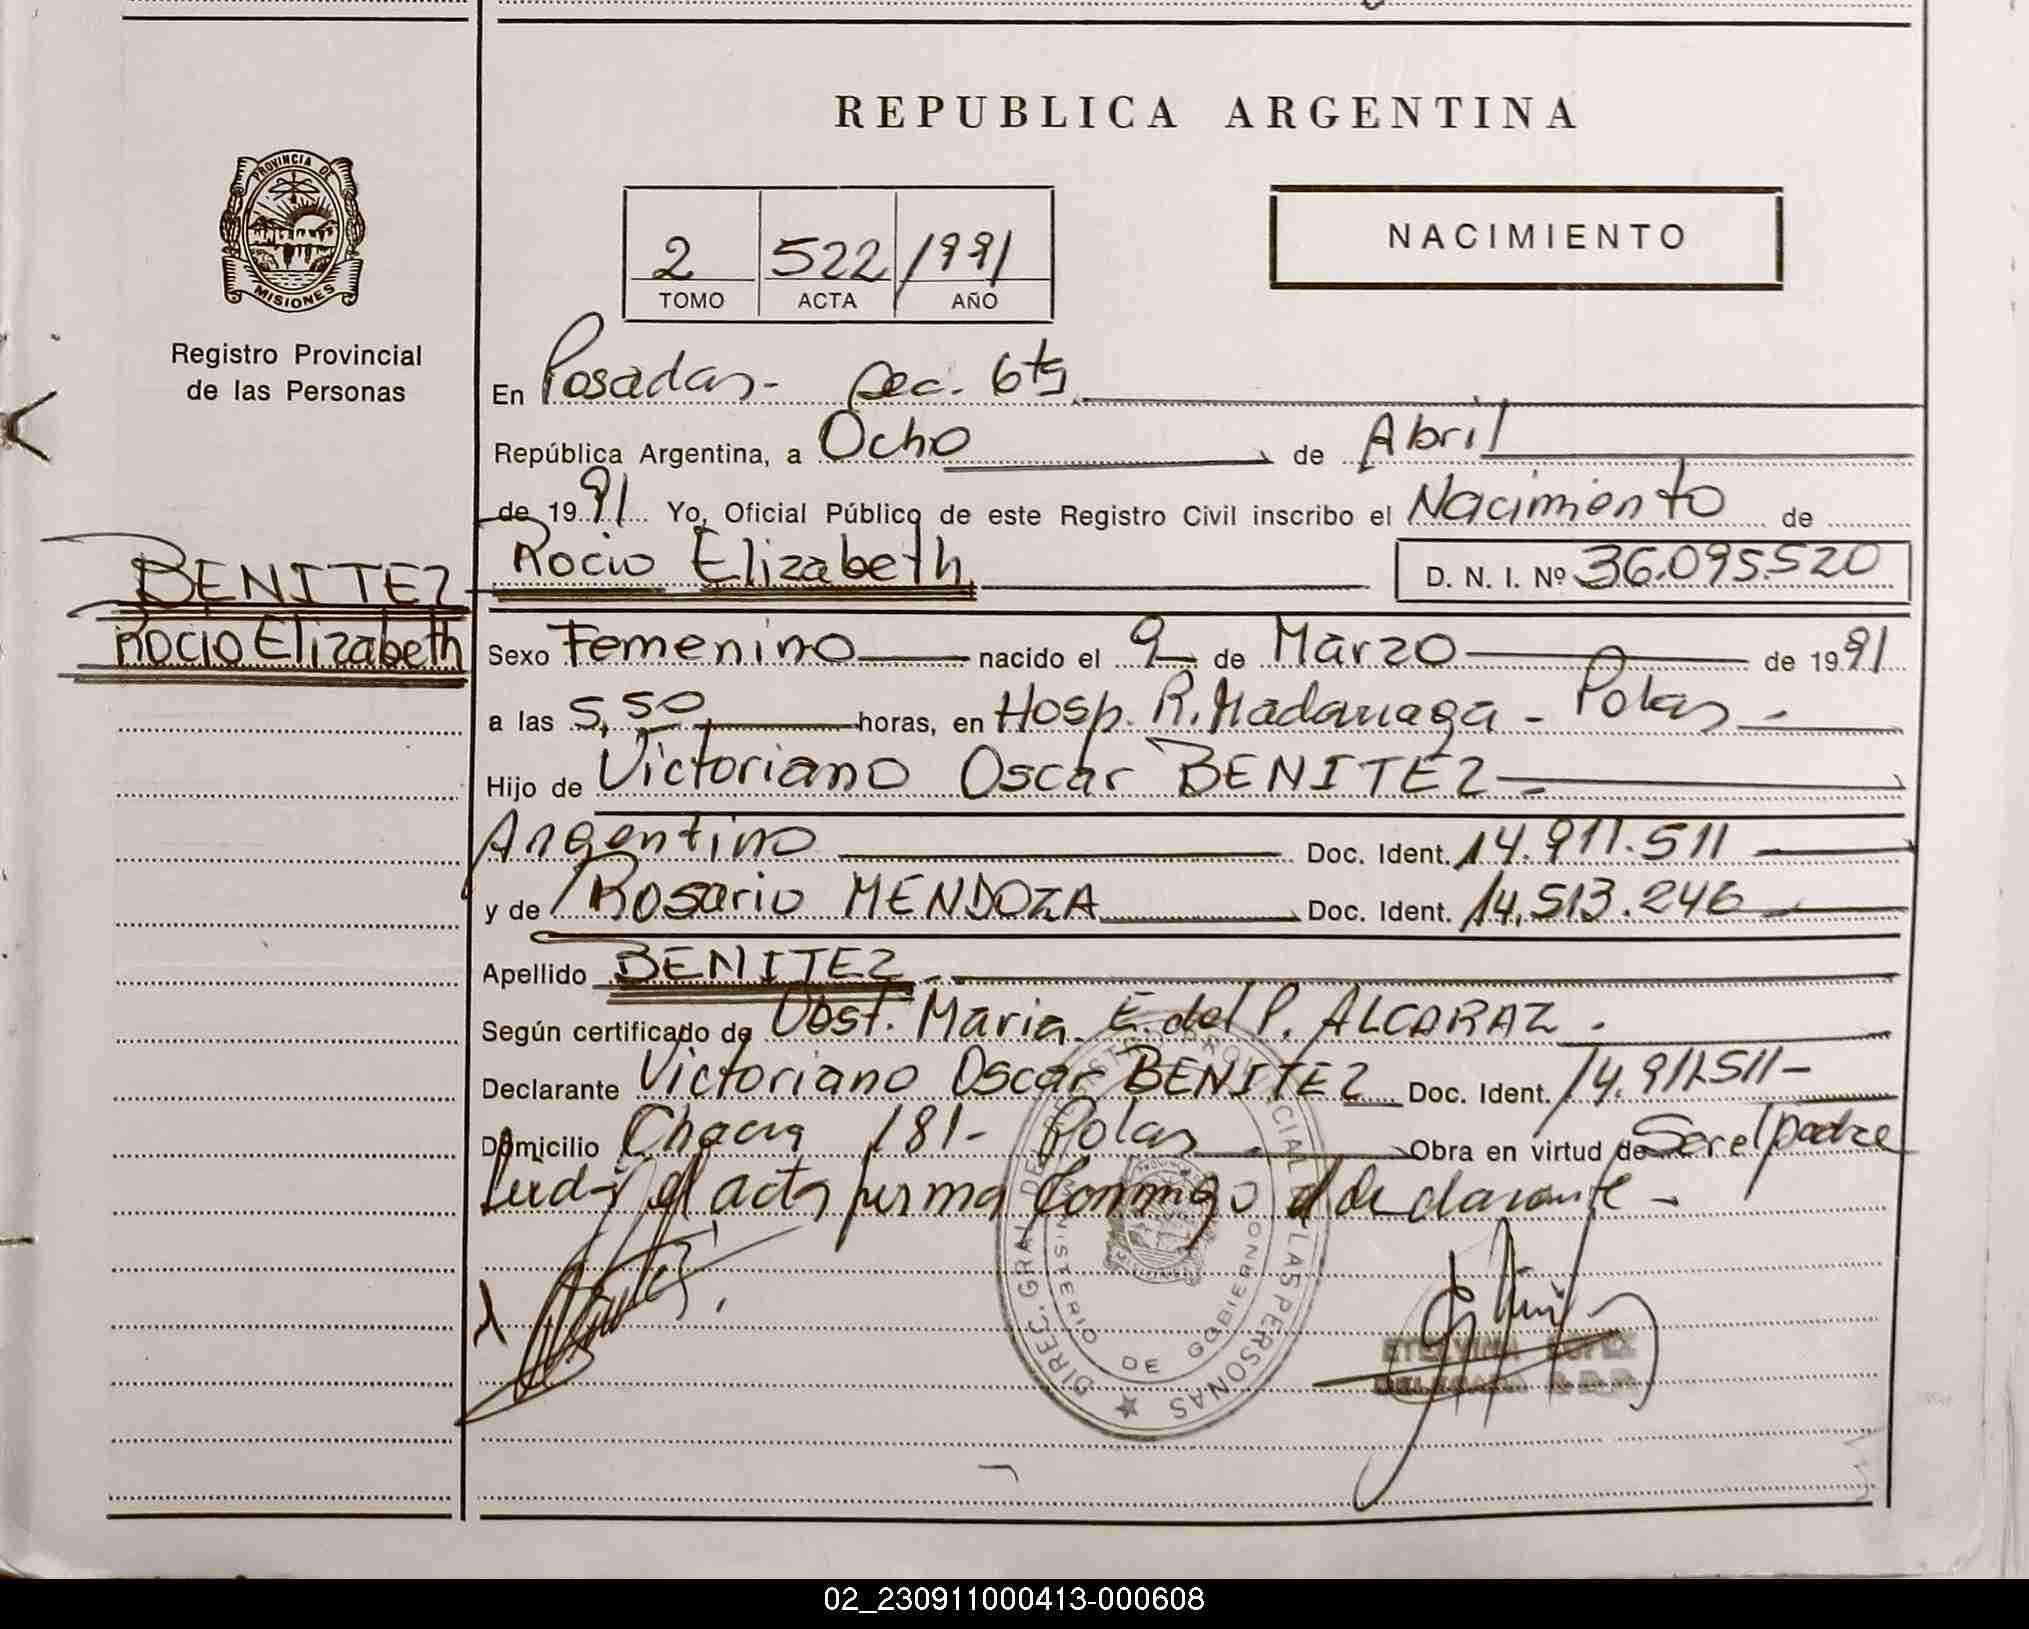 REPUBLICA ARGENTINA
PROVINCIA DE
MISIONES
Registro Provincial
de las Personas
NACIMIENTO
2 522 1991
TOMO ACTA AÑO
En Posadas- Sec. 6ta
República Argentina, a Ocho de Abril
de 1991 Yo, Oficial Público de este Registro Civil inscribo el Nacimiento de
Rocio Elizabeth D. N. I. Nº 36.095.520
BENITEZ
Rocio Elizabeth
Sexo Femenino nacido el 9 de Marzo de 1991
a las 5,50 horas, en Hosp. R. Madariaga - Pdas -
Hijo de Victoriano Oscar BENITEZ -
Argentino Doc. Ident. 14.911.511
y de Rosario MENDOZA Doc. Ident. 14.513.246
Apellido BENITEZ.
Según certificado de Obst. Maria E. del P. ALCARAZ.
Declarante Victoriano Oscar BENITEZ Doc. Ident. 14.911.511-
Domicilio Chacra 181- Pdas Obra en virtud de Ser el padre
Leida el acta firma conmigo el declarante -
DIREC. GRAL. DEL REGISTRO PROVINCIAL DE LAS PERSONAS
MINISTERIO DE GOBIERNO
ETELVINA LOPEZ
DELEGADA R.P.P.
02_230911000413-000608